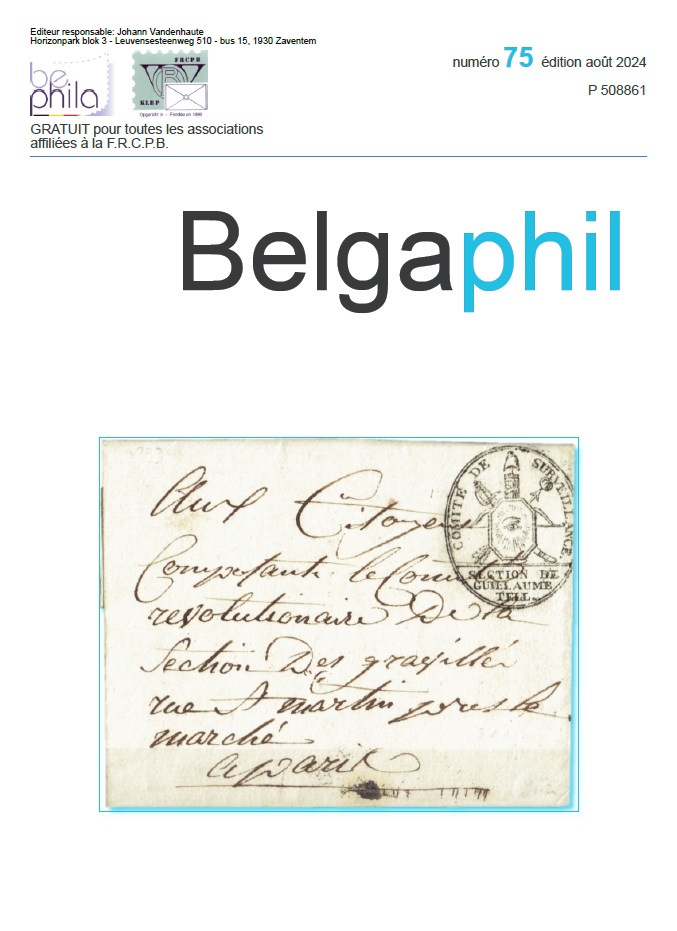 Editeur responsable: Johann Vandenhaute
Horizonpark blok 3 - Leuvensesteenweg 510 - bus 15, 1930 Zaventem
be
phila
FRCPB
KLBP
Opgericht in - Fondée en 1890
GRATUIT pour toutes les associations
affiliées à la F.R.C.P.B.
numéro 75 édition août 2024
P 508861
Belgaphil
COMITÉ DE SURVEILLANCE.
SECTION DE
GUILLAUME
TELL.
Aux Citoyens
Composants le Comité
revolutionaire De la
Section Des gravillié
rue St martin pres le
marché
a paris